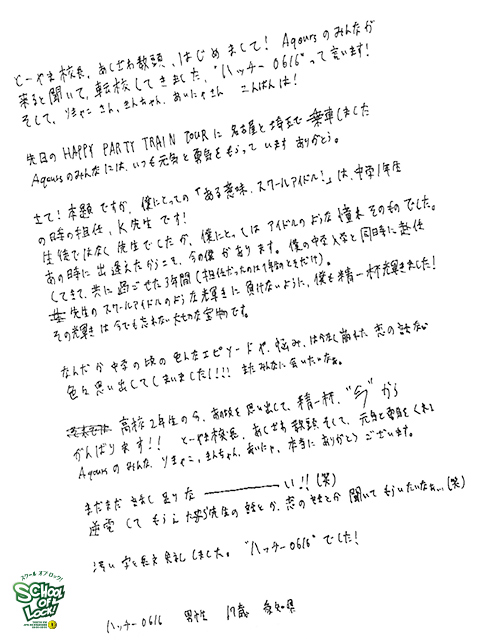 とーやま校長、あしざわ教頭、はじめまして! Aqoursのみんなが
来ると聞いて、転校してきました、"ハッチー0616"って言います!
そして、りきゃこさん、きんちゃん、あいにゃさん こんばんは!
先日のHAPPY PARTY TRAIN TOURに名古屋と埼玉で乗車しました
Aqoursのみんなには、いつも元気と勇気をもらっています ありがとう。
さて!本題ですが、僕にとっての「ある意味、スクールアイドル!」は、中学1年生
の時の担任、K先生です!
生徒ではなく先生でしたが、僕にとってはアイドルのような憧れそのものでした。
あの時に出逢えたからこそ、今の僕があります。僕の中学入学と同時に赴任
してきて、共に過ごせた3年間(担任だったのは1年間のときだけ)。
先生のスクールアイドルのような輝きに負けないように、僕も精一杯輝きました!
その輝きは今でも忘れない大切な宝物です。
なんだか中学の頃の色んなエピソードや、悩み、は今なく崩れた恋の話など
色々思い出してしまいました!!! またみんなに会いたいなぁ。
高校2年生の今、あの頃を思い出して、精一杯、"今"から
がんばります!! とーやま校長、あしざわ教頭、そして、元気と勇気をくれる
Aqoursのみんな、りきゃこ、きんちゃん、あいにゃ、本当にありがとうございます。
まだまだ話し足りな――――い!!(笑)
逆電してもらえたら先生の話とか、恋の話とか聞いてもらいたいなぁ...(笑)
汚い字と長文失礼しました。"ハッチー0616"でした!
ハッチー0616 男性 17歳 愛知県
スクール オブ ロック!
SCHOOL OF LOCK!